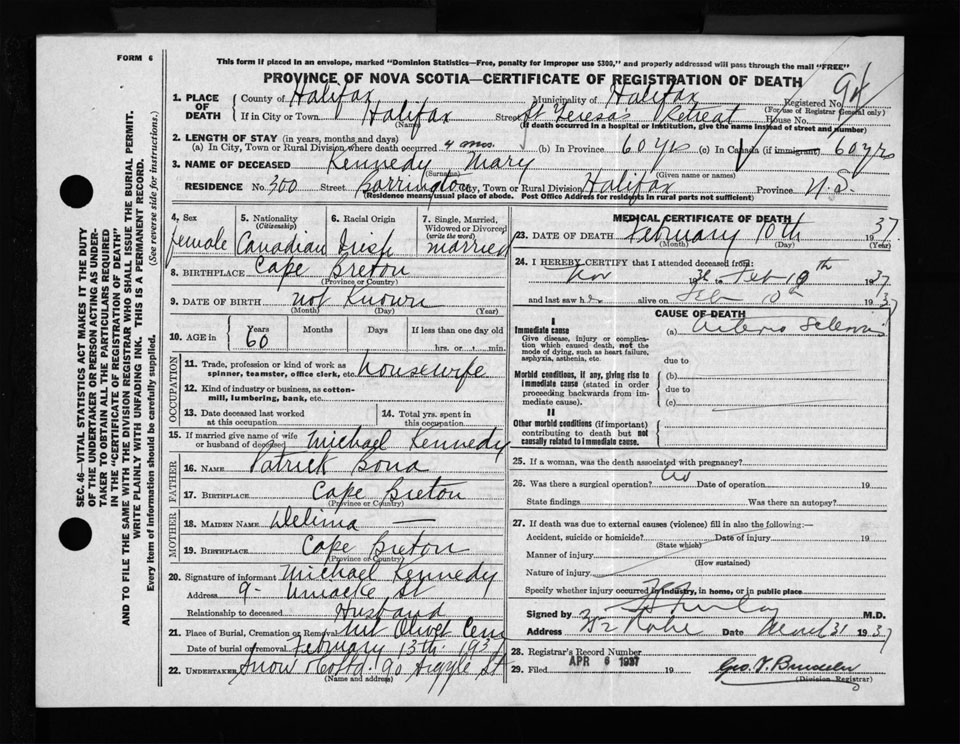 FORM 6
This form if placed in an envelope, marked "Dominion Statistics—Free, penalty for improper use $300," and properly addressed will pass through the mail "FREE"
PROVINCE OF NOVA SCOTIA—CERTIFICATE OF REGISTRATION OF DEATH
1. PLACE OF DEATH { County of Halifax Municipality of Halifax Registered No. 94
(For use of Registrar General only)
If in City or Town Halifax Street St Teresa's Retreat House No.
(Name) (If death occurred in a hospital or institution, give the name instead of street and number)
2. LENGTH OF STAY (in years, months and days)
(a) In City, Town or Rural Division where death occurred 4 mos. (b) In Province 60 yrs (c) In Canada (if immigrant) 60 yrs
3. NAME OF DECEASED Kennedy Mary
(Surname) (Given name or names)
RESIDENCE No. 300 Street Barrington City, Town or Rural Division Halifax Province N.S.
(Residence means usual place of abode. Post Office Address for residents in rural parts not sufficient)
4. Sex female
5. Nationality (Citizenship) Canadian
6. Racial Origin Irish
7. Single, Married, Widowed or Divorced (write the word) married
8. BIRTHPLACE Cape Breton
(Province or Country)
9. DATE OF BIRTH not Known
(Month) (Day) (Year)
10. AGE in { Years 60 Months Days If less than one day old
hrs. or min.
OCCUPATION
11. Trade, profession or kind of work as spinner, teamster, office clerk, etc. housewife
12. Kind of industry or business, as cotton-mill, lumbering, bank, etc.
13. Date deceased last worked at this occupation
14. Total yrs. spent in this occupation
15. If married give name of wife or husband of deceased Michael Kennedy
FATHER
16. NAME Patrick Bona
17. BIRTHPLACE Cape Breton
(Province or Country)
MOTHER
18. MAIDEN NAME Delima —
19. BIRTHPLACE Cape Breton
(Province or Country)
20. Signature of informant Michael Kennedy
Address 9- Uniacke St
Relationship to deceased Husband
21. Place of Burial, Cremation or Removal Mt Olivet Cem
Date of burial or removal February 13th 1937
22. UNDERTAKER Snow & Co Ltd. 90 Argyle St
(Name and address)
MEDICAL CERTIFICATE OF DEATH
23. DATE OF DEATH February 10th 1937
(Month) (Day) (Year)
24. I HEREBY CERTIFY that I attended deceased from:
Nov 1936 to Feb 10th 1937
and last saw her alive on Feb 10th 1937
CAUSE OF DEATH
I
Immediate cause (a) Arterio Sclerosis
Give disease, injury or complication which caused death, not the mode of dying, such as heart failure, asphyxia, asthenia, etc.
due to
Morbid conditions, if any, giving rise to immediate cause (stated in order proceeding backwards from immediate cause).
(b)
due to
(c)
II
Other morbid conditions (if important) contributing to death but not causally related to immediate cause.
25. If a woman, was the death associated with pregnancy?
26. Was there a surgical operation? No Date of operation 19
State findings Was there an autopsy?
27. If death was due to external causes (violence) fill in also the following:—
Accident, suicide or homicide? Date of injury 19
(State which)
Manner of injury
(How sustained)
Nature of injury
Specify whether injury occurred in industry, in home, or in public place
Signed by M.D.
Address Date March 31 1937
28. Registrar's Record Number
29. Filed APR 6 1937 19
(Division Registrar)
SEC. 46—VITAL STATISTICS ACT MAKES IT THE DUTY
OF THE UNDERTAKER OR PERSON ACTING AS UNDER-
TAKER TO OBTAIN ALL THE PARTICULARS REQUIRED
IN THE "CERTIFICATE OF REGISTRATION OF DEATH"
AND TO FILE THE SAME WITH THE DIVISION REGISTRAR WHO SHALL ISSUE THE BURIAL PERMIT.
WRITE PLAINLY WITH UNFADING INK. THIS IS A PERMANENT RECORD.
Every item of information should be carefully supplied. (See reverse side for instructions.)